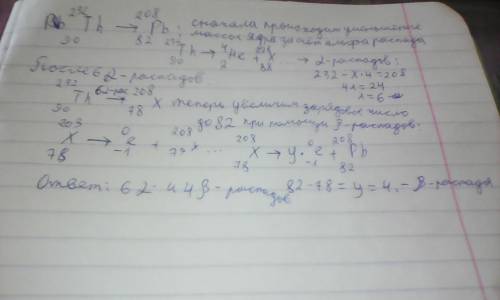 232 90 Th → 208 82 Pb; сначала происходит уменьшение
массы ядра за счёт альфа распада
232 90 Th → 4 2 He + 228 88 X ... → α-распадов:
После 6 α-распадов
232 - x·4 = 208
4x = 24
x = 6
232 90 Th → 208 78 X теперь увеличим зарядовое число
до 82 при помощи β-распадов.
208 78 X → 0 -1 e + 208 79 X ... 208 78 X → y· 0 -1 e + 208 82 Pb
82-78 = y = 4. - β-распада
Ответ: 6 α. 4 β- распадов